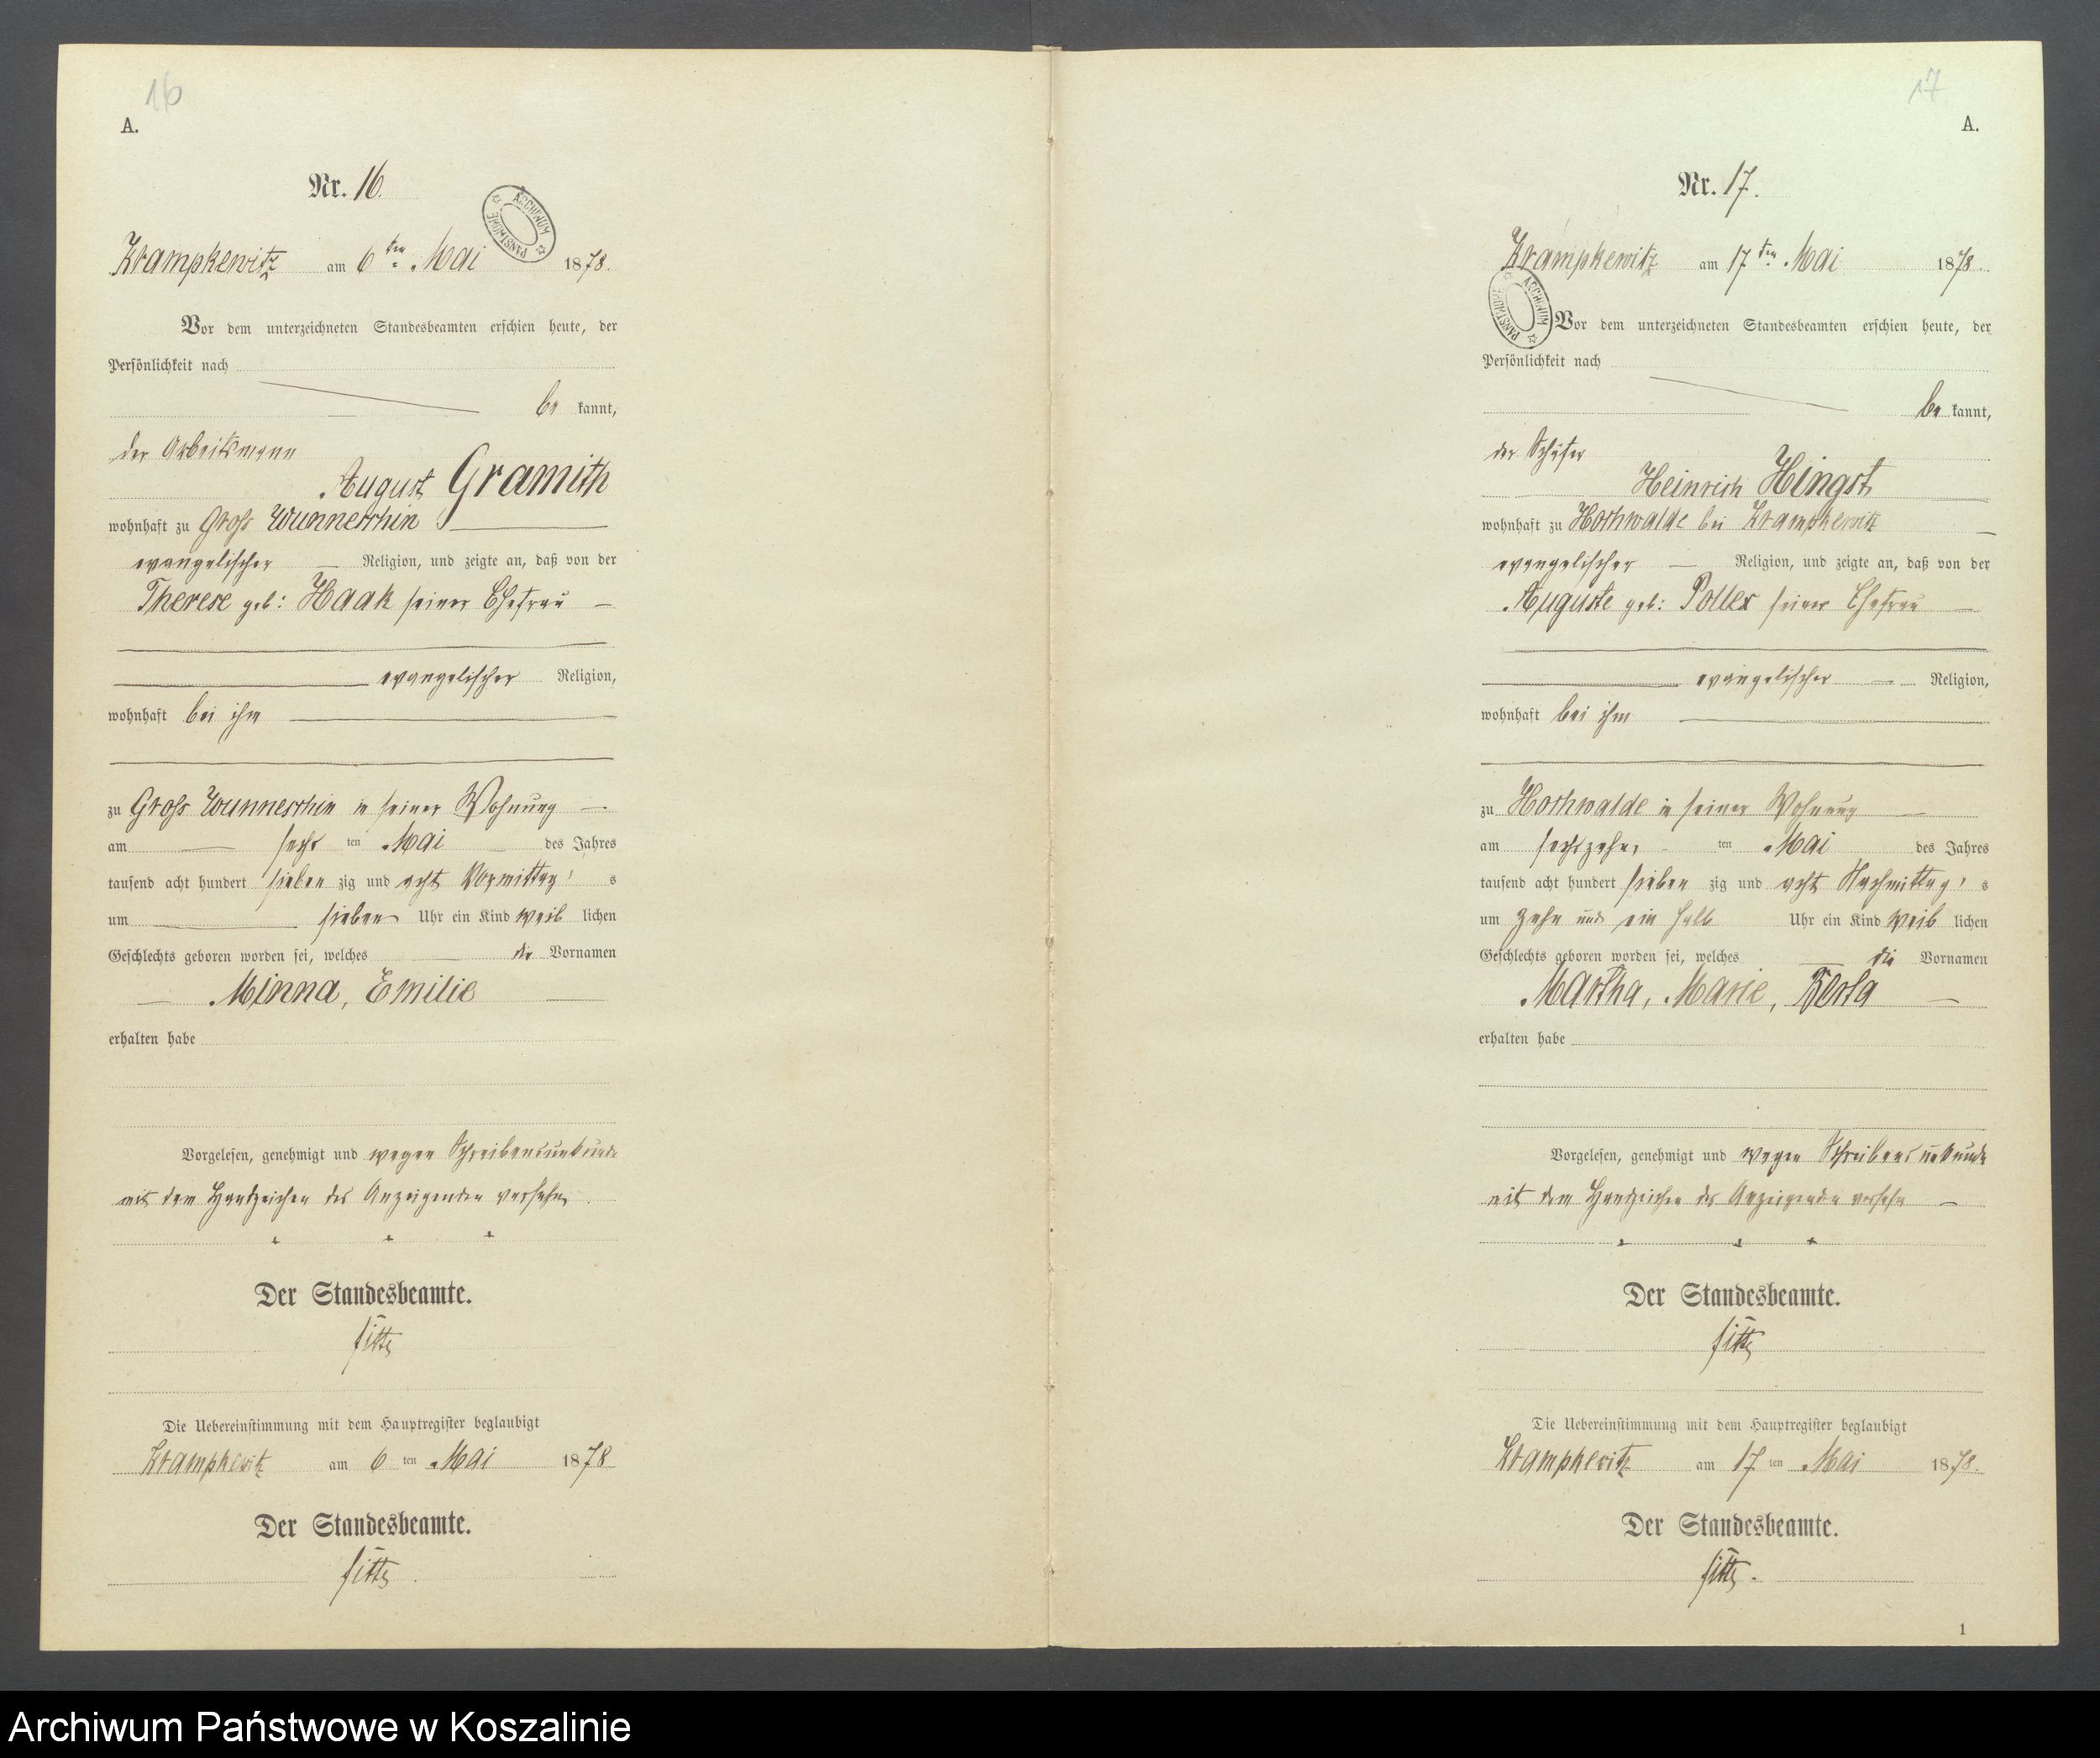 16
A.
Nr. 16.
ARCHIWUM PAŃSTWOWE
Krampkewitz am 6 ten Mai 1878.
Vor dem unterzeichneten Standesbeamten erschien heute, der
Persönlichkeit nach
be kannt,
der Arbeitsmann
August Gramith
wohnhaft zu Gross Wunneschin
evangelischer Religion, und zeigte an, daß von der
Therese geb: Haak seiner Ehefrau
evangelischer Religion,
wohnhaft bei ihm
zu Gross Wunneschin in seiner Wohnung
am sechs ten Mai des Jahres
tausend acht hundert sieben zig und acht Vormittag s
um sieben Uhr ein Kind weib lichen
Geschlechts geboren worden sei, welches die Vornamen
Minna, Emilie
erhalten habe
Vorgelesen, genehmigt und wegen Schreibensunkunde
mit dem Handzeichen des Anzeigenden versehen
+ + +
Der Standesbeamte.
Die Uebereinstimmung mit dem Hauptregister beglaubigt
Krampkewitz am 6 ten Mai 1878
Der Standesbeamte.
17
A.
Nr. 17.
Krampkewitz am 17 ten Mai 1878.
ARCHIWUM PAŃSTWOWE
Vor dem unterzeichneten Standesbeamten erschien heute, der
Persönlichkeit nach
be kannt,
der Schäfer
Heinrich Hingst
wohnhaft zu Hochwalde bei Krampkewitz
evangelischer Religion, und zeigte an, daß von der
Auguste geb: Pollex seiner Ehefrau
evangelischer Religion,
wohnhaft bei ihm
zu Hochwalde in seiner Wohnung
am sechszehn ten Mai des Jahres
tausend acht hundert sieben zig und acht Nachmittag s
um zehn und ein halb Uhr ein Kind weib lichen
Geschlechts geboren worden sei, welches die Vornamen
Martha, Marie,
erhalten habe
Vorgelesen, genehmigt und wegen Schreibensunkunde
mit dem Handzeichen des Anzeigenden versehn
+ + +
Der Standesbeamte.
Die Uebereinstimmung mit dem Hauptregister beglaubigt
Krampkewitz am 17 ten Mai 1878.
Der Standesbeamte.
1
Archiwum Państwowe w Koszalinie